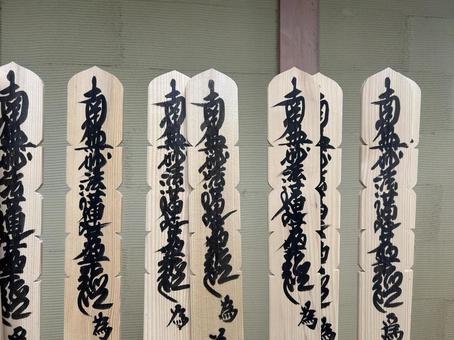 南無妙法蓮華経
南無妙法蓮華経 為
南無妙法蓮華経 為
南無妙法蓮華経 為
南無妙法蓮華経 為
南無妙法蓮華経 為